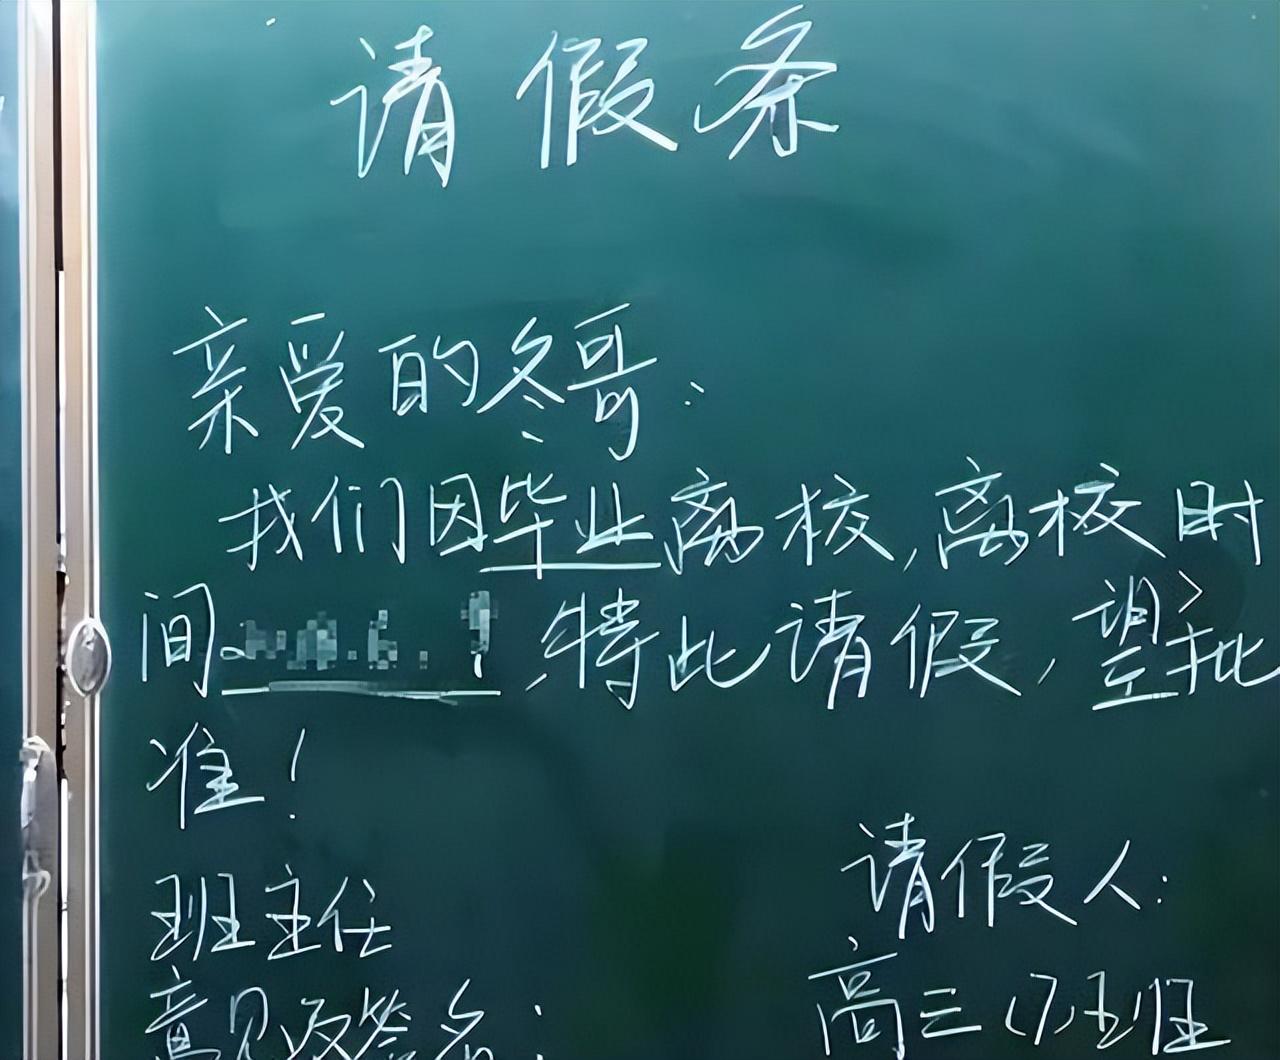 请假条
亲爱的冬哥:
我们因毕业离校,离校时
间 ,特此请假,望批
准!
班主任
意见及签名:
请假人:
高三(7)班